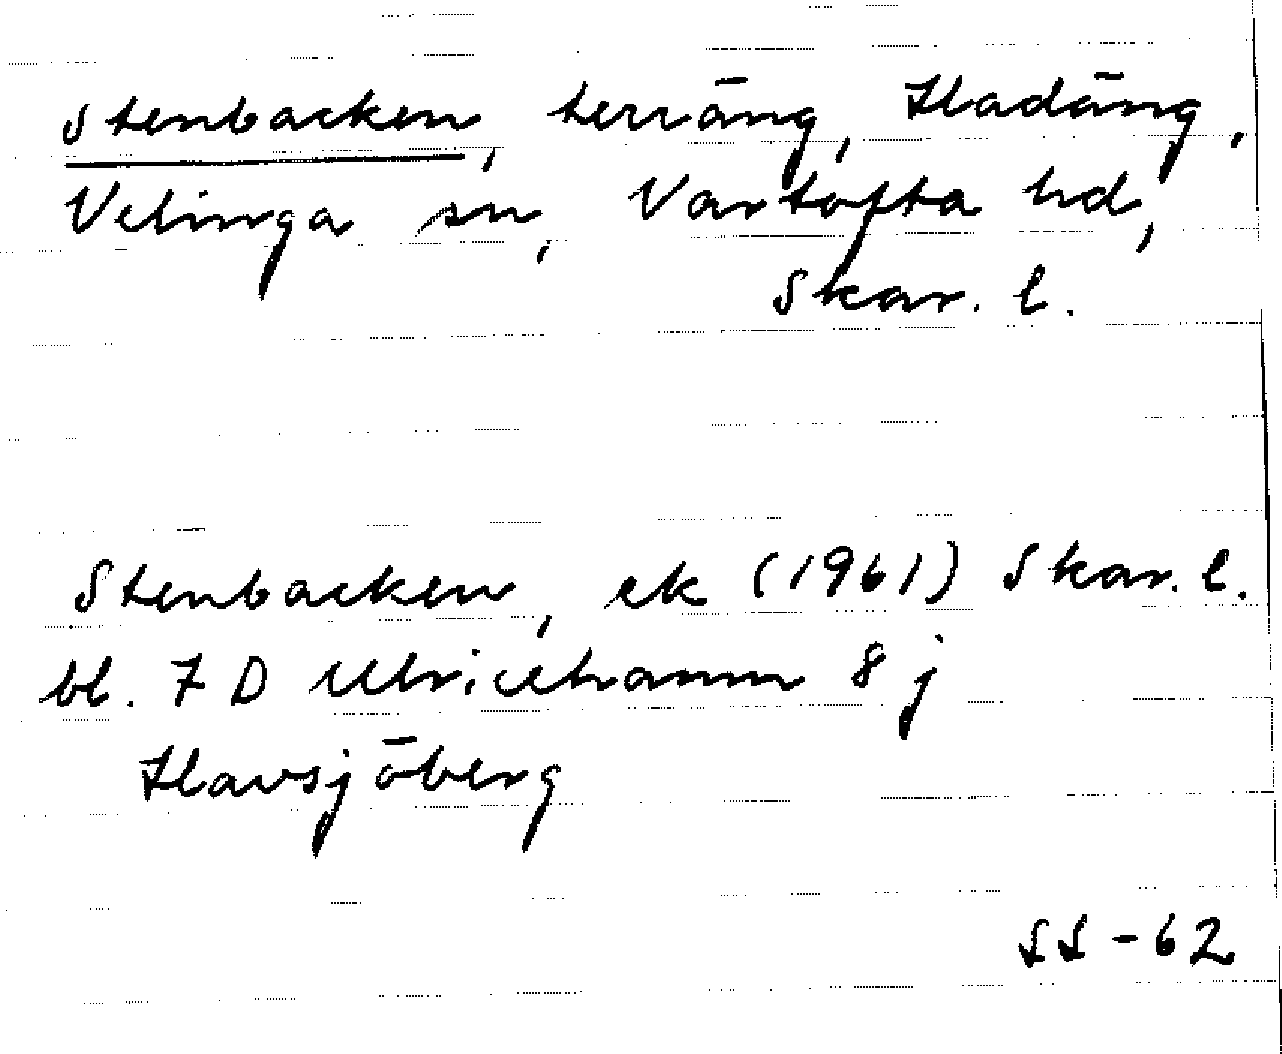 Stenbacken, terräng, Hladäng,
Velinga sn, Vartofta hd,
Skar. l.
Stenbacken, ek (1961) Skar. l.
bl. 7 D Ulricehamn 8 j
Havsjöberg
SS - 62